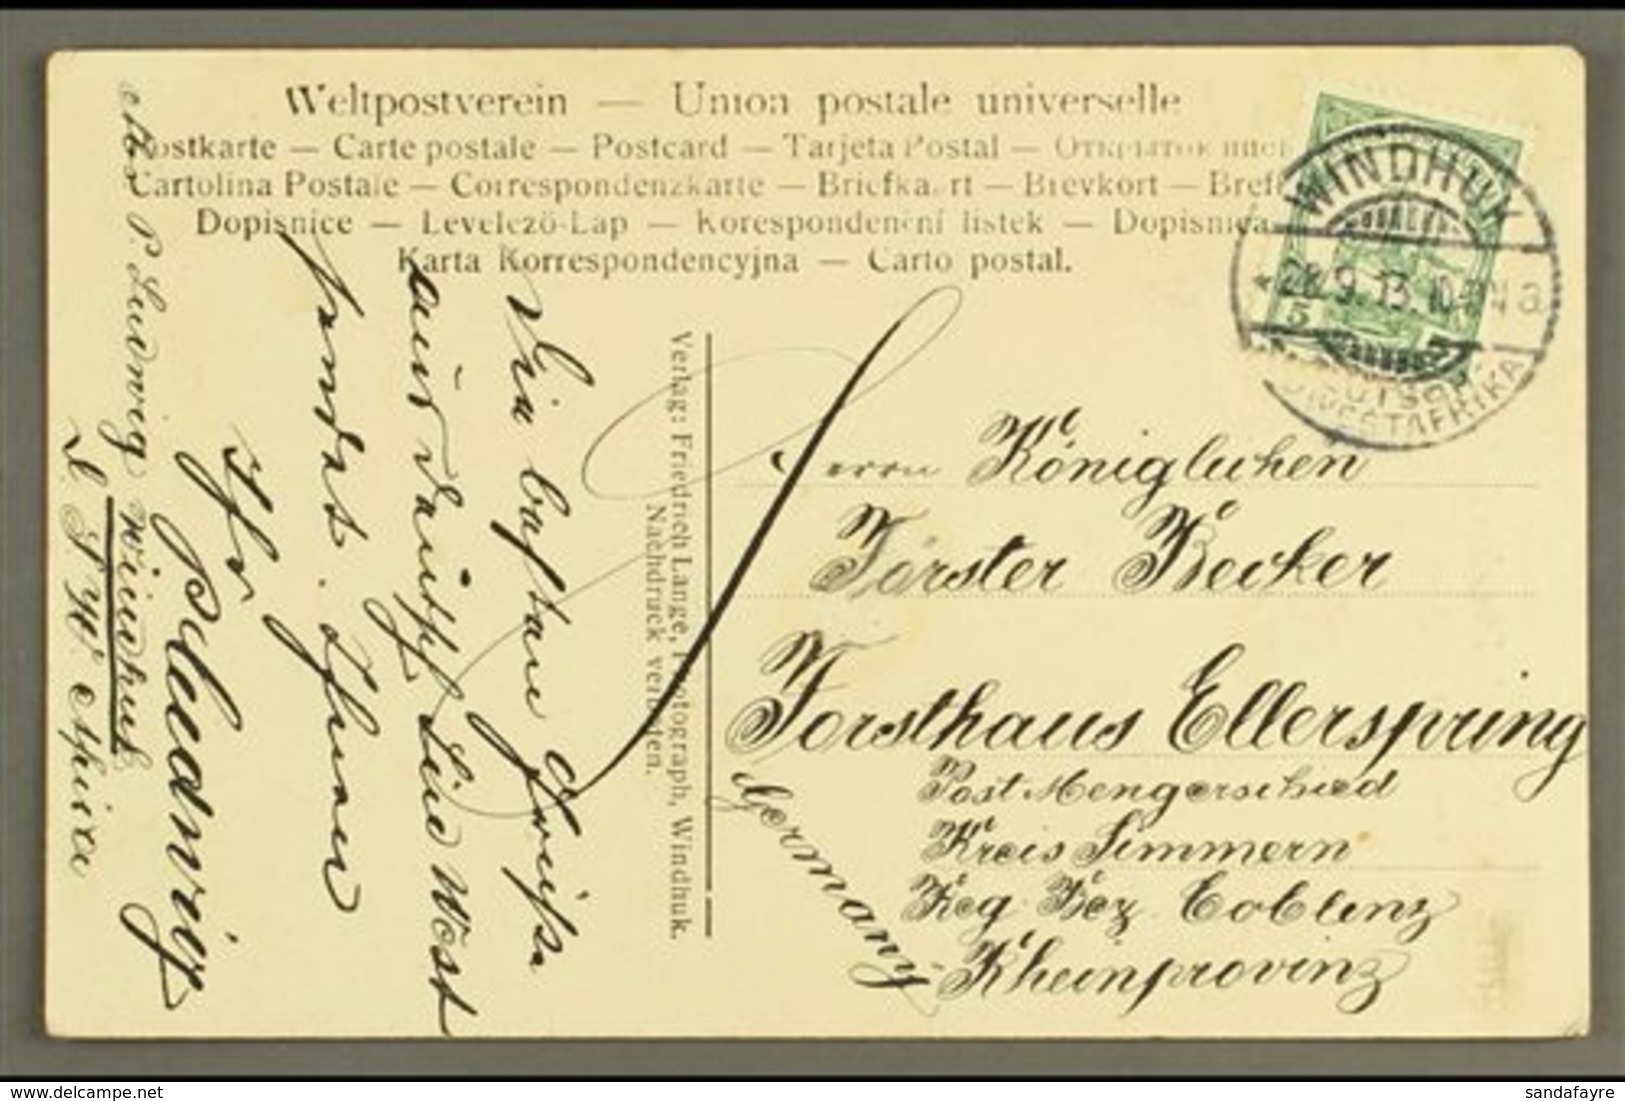 Weltpostverein — Union postale universelle
Postkarte — Carte postale — Postcard — Tarjeta Postal —
Cartolina Postale — Correspondenzkarte — Briefkaart — Brevkort —
Dopisnice — Levelező-Lap — Korespondenční lístek — Dopisnica
Karta Korrespondencyjna — Carto postal.
WINDHUK
9. 13. 10-
a
DEUTSCH-
SÜDWESTAFRIKA
5
Herrn Königlichen
Förster Becker
Forsthaus Ellerspring
Post Mengerschied
Kreis Simmern
Reg. Bez. Coblenz
Rheinprovinz
Germany
Verlag: Friedrich Lange, Photograph, Windhuk.
Nachdruck verboten.
Die besten Grüsse
aus Deutsch Süd West
sendet Ihnen
Ihr
P. Ludwig
Windhuk
D. S. W. Africa
delcampe.net
sandafayre